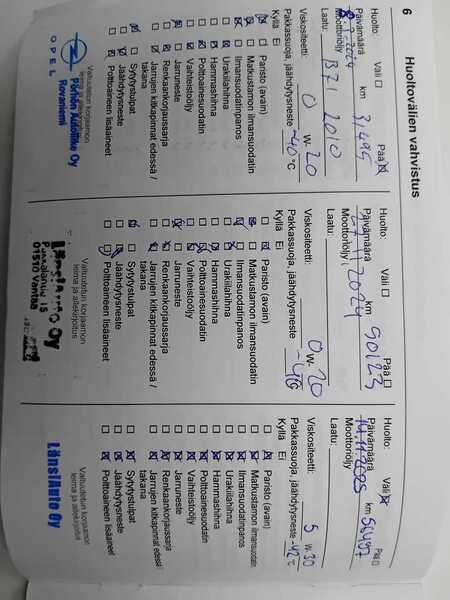 6
Huoltovälien vahvistus
Huolto: Väli ☐ Pää ☒
Päivämäärä km 31495
8.2.2024
Moottoriöljy
Laatu: B71 2010
Viskositeetti: 0 W- 20
Pakkassuoja, jäähdytysneste -40 °C
Kyllä Ei
Paristo (avain)
Matkustamon ilmansuodatin
Ilmansuodatinpanos
Urakiilahihna
Hammashihna
Polttoainesuodatin
Vaihteistoöljy
Jarruneste
Renkaankorjaussarja
Jarrujen kitkapinnat edessä /
takana
Sytytystulpat
Jäähdytysneste
Polttoaineen lisäaineet
Valtuutetun korjaamon
leima ja allekirjoitus
OPEL
Pörhön Autoliike Oy
Rovaniemi
Huolto: Väli ☐ Pää ☐
Päivämäärä km 50123
27.11.2024
Moottoriöljy
Laatu:
Viskositeetti: 0 W- 20
Pakkassuoja, jäähdytysneste
Kyllä Ei
Paristo (avain)
Matkustamon ilmansuodatin
Ilmansuodatinpanos
Urakiilahihna
Hammashihna
Polttoainesuodatin
Vaihteistoöljy
Jarruneste
Renkaankorjaussarja
Jarrujen kitkapinnat edessä /
takana
Sytytystulpat
Jäähdytysneste
Polttoaineen lisäaineet
Valtuutetun korjaamon
leima ja allekirjoitus
LänsiAuto Oy
01510 Vantaa
Huolto: Väli ☒ Pää ☐
Päivämäärä km 56497
14.11.2025
Moottoriöljy
Laatu:
Viskositeetti: 5 W- 30
Pakkassuoja, jäähdytysneste -42 °C
Kyllä Ei
Paristo (avain)
Matkustamon ilmansuodatin
Ilmansuodatinpanos
Urakiilahihna
Hammashihna
Polttoainesuodatin
Vaihteistoöljy
Jarruneste
Renkaankorjaussarja
Jarrujen kitkapinnat edessä /
takana
Sytytystulpat
Jäähdytysneste
Polttoaineen lisäaineet
Valtuutetun korjaamon
leima ja allekirjoitus
LänsiAuto Oy